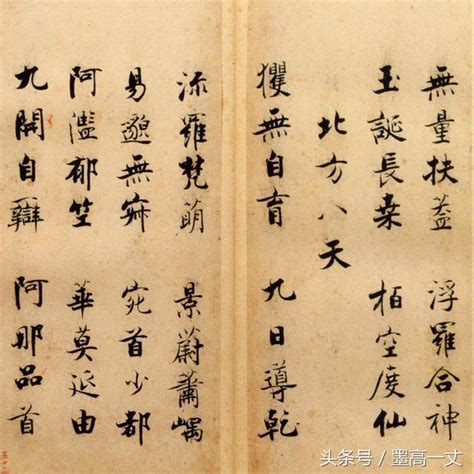 無量扶蓋 浮羅合神
玉誕長桒 栢空度仙
北方八天
玃無自育 九日導乾
流羅梵萌 景蔚蕭嵎
易邈無寂 宛首少都
阿濫郁竺 華莫延由
九開自辯 阿那品首
头条号 / 墨高一丈